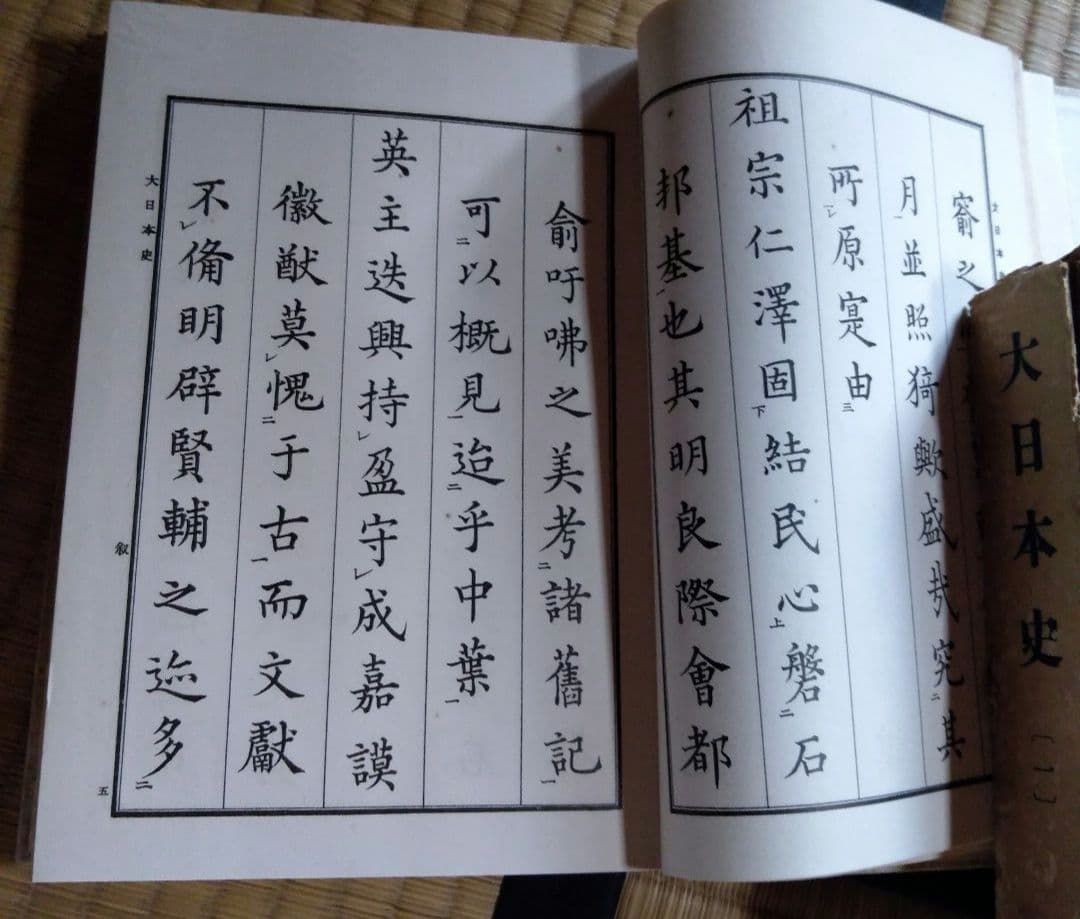 窬之
月並照猗歟盛哉究其
所原寔由
祖宗仁澤固結民心磐石
邦基也其明良際會都
俞吁咈之美考諸舊記
可以概見迨乎中葉
英主迭興持盈守成嘉謨
徽猷莫愧于古而文獻
不備明辟賢輔之迹多
大日本史
叙
五
大日本史
〔一〕